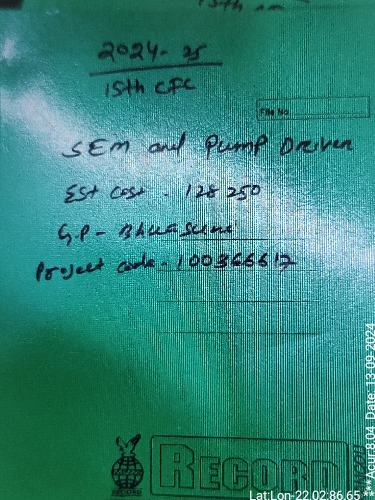 2024-25
15th CFC
File No
SEM and Pump Driven
Est Cost - 128250
GP - Bhuasuni
Project code - 100366617
RECORD
RECORD
Lat:Lon-22.02:86.65***Acur:8.04 Date: 13-09-2024